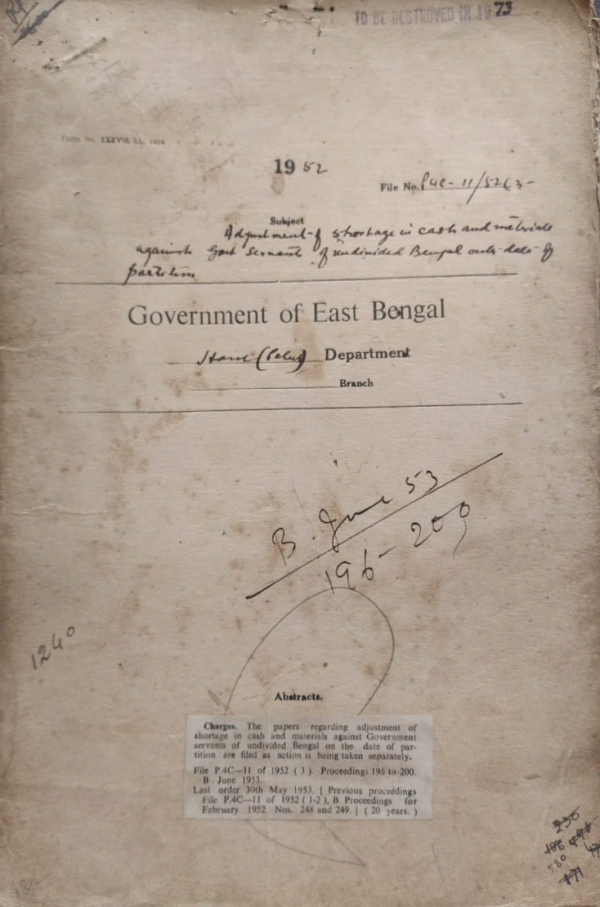 TO BE DESTROYED IN 1973
1952
File No. P4C-11/52(3)
Subject
Adjustment of shortage in cash and materials
against Govt Servants of undivided Bengal on the date of
partition
Government of East Bengal
Home (Police) Department
Branch
B. June 53
196-200
1240
Abstracts.
Charges. The papers regarding adjustment of
shortage in cash and materials against Government
servants of undivided Bengal on the date of par-
tition are filed as action is being taken separately.
File P.4C—11 of 1952 ( 3 ) Proceedings 196 to 200.
B June 1953.
Last order 30th May 1953. [ Previous proceedings
File P.4C—11 of 1952 ( 1-2 ), B Proceedings for
February 1952. Nos. 248 and 249. ] ( 20 years. )